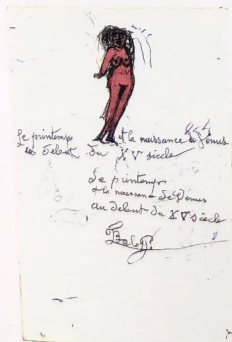 Le printemps et la naissance de Venus
au début du XVe siècle
Le printemps
et la naissance de Venus
au debut du XVe siècle